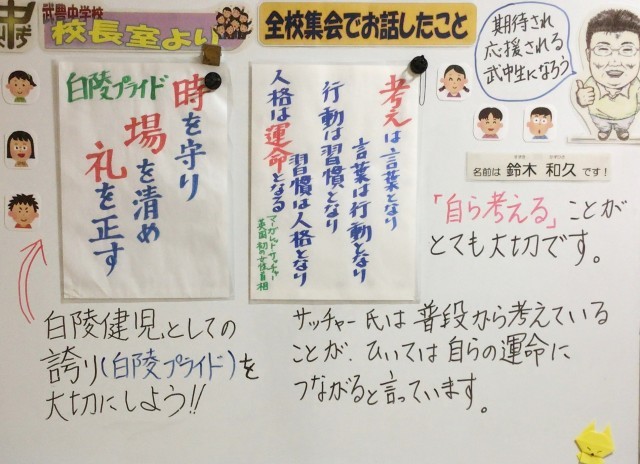 武豊中学校
校長室より
全校集会でお話したこと
期待され
応援される
武中生になろう
白陵プライド
時を守り
場を清め
礼を正す
考えは言葉となり
言葉は行動となり
行動は習慣となり
習慣は人格となり
人格は運命となる
マーガレット・サッチャー
英国初の女性首相
すずき かずひさ
名前は 鈴木 和久 です!
「自ら考える」ことが
とても大切です。
白陵健児としての
誇り(白陵プライド)を
大切にしよう!!
サッチャー氏は普段から考えている
ことが、ひいては自らの運命に
つながると言っています。